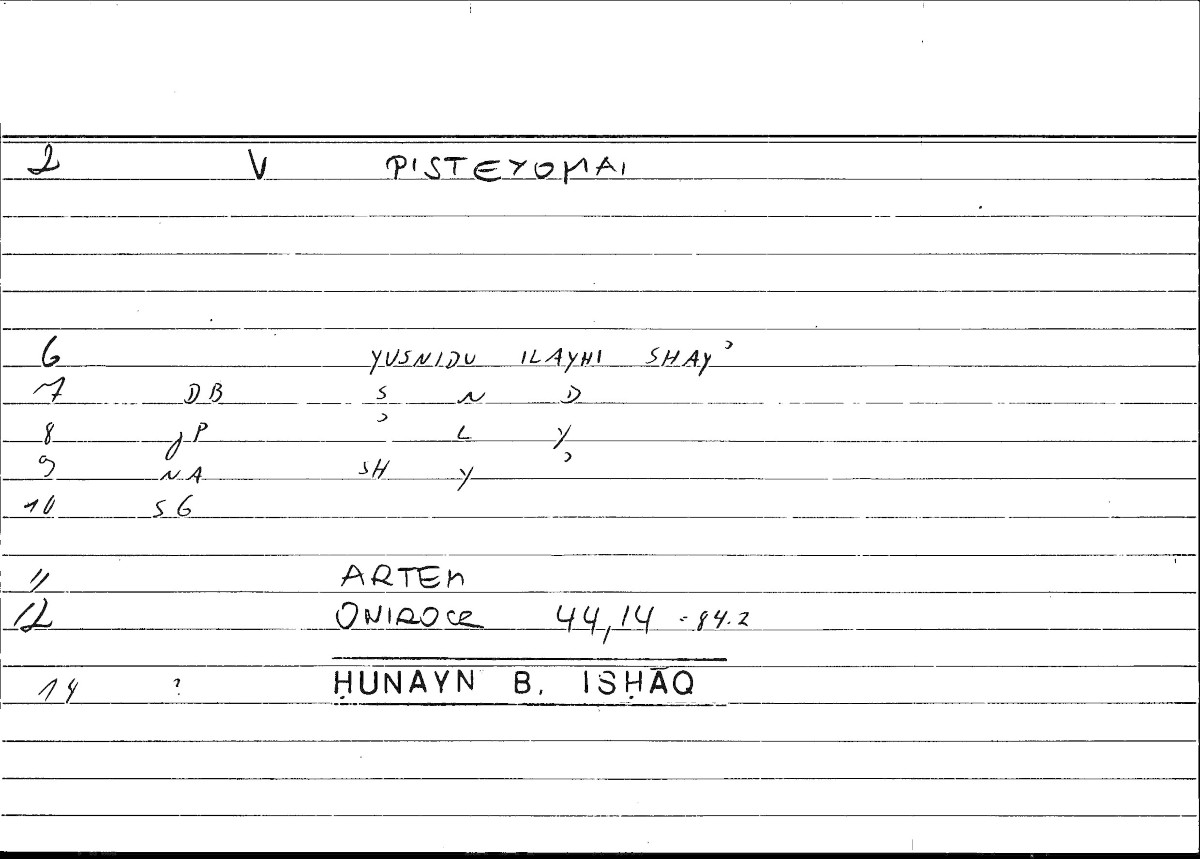 2 V PISTEYOMAI
6 YUSNIDU ILAYHI SHAYʾ
7 DB S N D
8 JP ʾ L Y
9 NA SH Y ʾ
10 SG
11 ARTEM
12 ONIROCR 44,14 = 84.2
14 ? ḤUNAYN B. ISḤĀQ